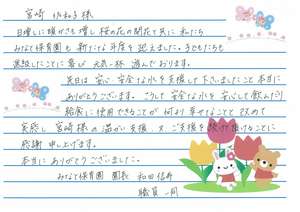 宮崎 佐和子 様
日増しに暖かさも増し 桜の花の開花と共に 私たち
みなと保育園も 新たな年度を迎えました。子どもたちも
進級したことに喜び 元気一杯 遊んでおります。
先日は 安心安全な水を支援して下さいましたこと 本当に
ありがとうございます。こうして 安全な水を 安心して飲んだり
給食に使用できることが 何より 幸せなことと 改めて
実感し 宮崎様の温かい支援 ご支援を頂けることに
感謝 申し上げます。
本当に ありがとうございました。
みなと保育園 園長 和田信寿
職員一同